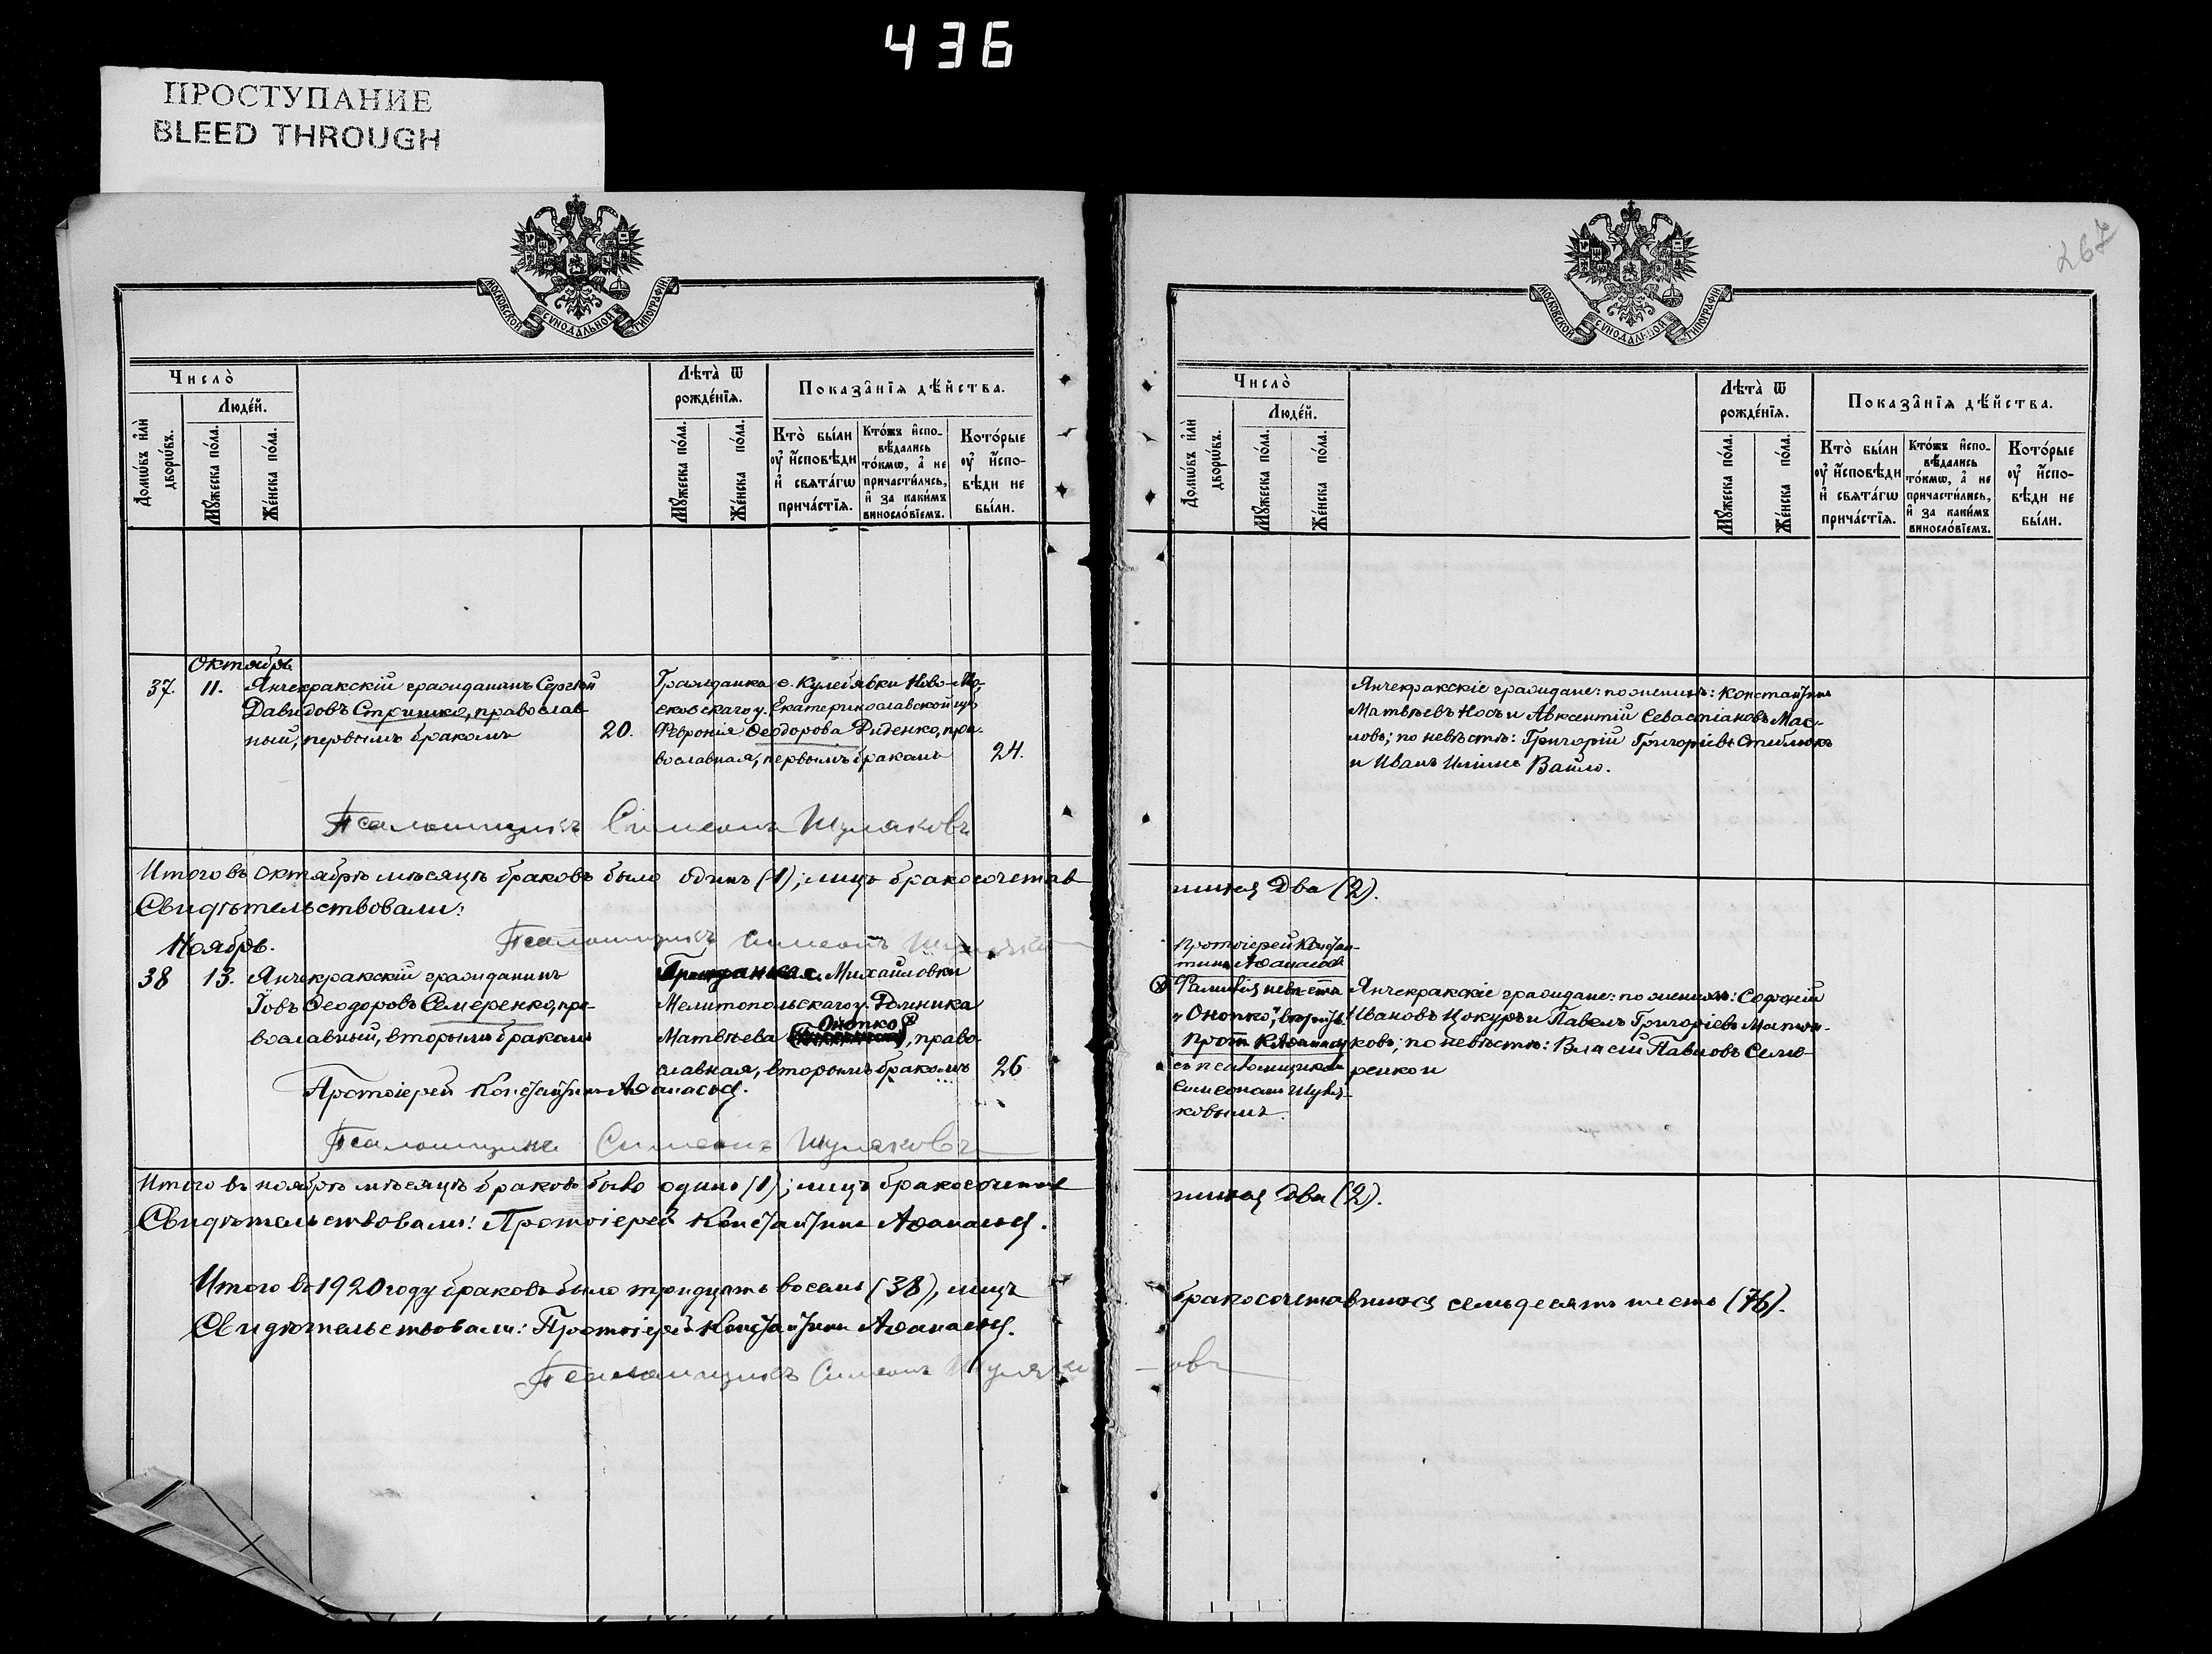 436
ПРОСТУПАНИЕ
BLEED THROUGH
267
МОСКОВСКОЙ СѴНОДАЛЬНОЙ ТИПОГРАФІИ
Число̀
Люде́й.
Домѡ́въ и҆лѝ дворѡ́въ.
Мꙋ́жеска по́ла.
Же́нска по́ла.
Лѣта̀ ѿ рожде́нїѧ.
Мꙋ́жеска по́ла.
Же́нска по́ла.
Показа̑нїѧ дѣ́йства.
Кто̀ бы́ли ᲂу҆ и҆́сповѣди и҆ свѧта́гѡ прича́стїѧ.
Кто́жъ и҆спо-вѣ́дались то́кмѡ, а҆ не причасти́лись, и҆ за каки́мъ винослóвїемъ.
Кото́рые ᲂу҆ и҆́спо-вѣди не бы́ли.
Октябрь
37. 11. Янчекракскій гражданинъ Сергѣй
Давидовъ Стришко, православ
ный, первымъ бракомъ 20.
Гражданка с. Кулебявки Ново-Мо-
сковскаго у. Екатеринославской губ
Феврония Ѳеодорова Диденко, пра-
вославная, первымъ бракомъ 24.
Псаломщикъ Симеонъ Шуляковъ
Итого въ октябрѣ мѣсяцѣ браковъ было одинъ (1); лицъ бракосочетав
Свидѣтельствовали:
Псаломщикъ Симеонъ
Ноябрь.
38 13. Янчекракскій гражданинъ
Іовъ Ѳеодоровъ Семеренко, пра-
вославный, вторымъ бракомъ
Гражданка с. Михайловки
Мелитопольскаго у.
Онопко
Матвѣева , право-
славная, вторымъ бракомъ 26
Протоіерей Константинъ Аѳанасьевъ.
Псаломщикъ Симеонъ Шуляковъ
Итого въ ноябрѣ мѣсяцѣ браковъ было одинъ (1); лицъ бракосочетав
Свидѣтельствовали: Протоіерей Константинъ Аѳанасьевъ.
Итого въ 1920 году браковъ было тридцать восемь (38), лицъ
Свидѣтельствовали: Протоіерей Константинъ Аѳанасьевъ.
Псаломщикъ Симеонъ Шуляк
МОСКОВСКОЙ СѴНОДАЛЬНОЙ ТИПОГРАФІИ
Число̀
Люде́й.
Домѡ́въ и҆лѝ дворѡ́въ.
Мꙋ́жеска по́ла.
Же́нска по́ла.
Лѣта̀ ѿ рожде́нїѧ.
Мꙋ́жеска по́ла.
Же́нска по́ла.
Показа̑нїѧ дѣ́йства.
Кто̀ бы́ли ᲂу҆ и҆́сповѣди и҆ свѧта́гѡ прича́стїѧ.
Кто́жъ и҆спо-вѣ́дались то́кмѡ, а҆ не причасти́лись, и҆ за каки́мъ винослóвїемъ.
Кото́рые ᲂу҆ и҆́спо-вѣди не бы́ли.
Янчекракскіе граждане: по женихѣ: Константинъ
Матвѣевъ Носъ и Авксентій Севастіановъ Мас-
ловъ; по невѣстѣ: Григорій Григоріевъ
и Иванъ Ильинъ Вайло.
шихся два (2).
Протоіерей Констан-
тинъ Аѳанасьев
Фамилія невѣсты
"Онопко", вѣрно
Прот. К. Аѳанасьев
съ псаломщикомъ
Симеономъ Шуля-
ковымъ.
Янчекракскіе граждане: по женихѣ: Софроній
Ивановъ Цокуръ и Павелъ Григоріевъ
ковъ; по невѣстѣ: Власій Павловъ Семе-
ренко и
шихся два (2).
бракосочетавшихся семьдесятъ шесть (76).
овъ